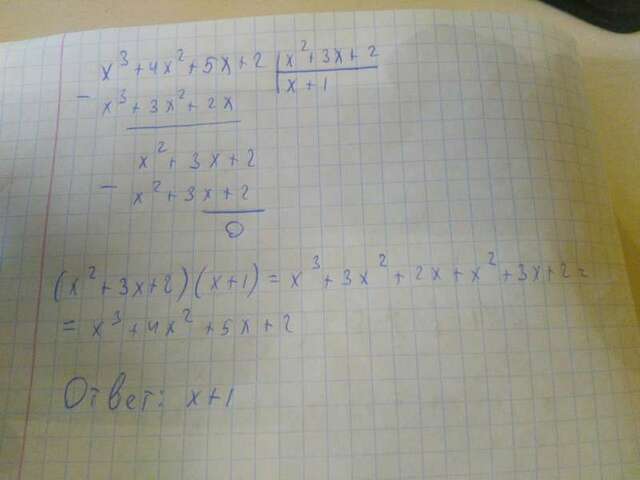 x³+4x²+5x+2 | x²+3x+2
- x³+3x²+2x | x+1
x²+3x+2
- x²+3x+2
0
(x²+3x+2)(x+1)=x³+3x²+2x+x²+3x+2=
=x³+4x²+5x+2
Ответ: x+1